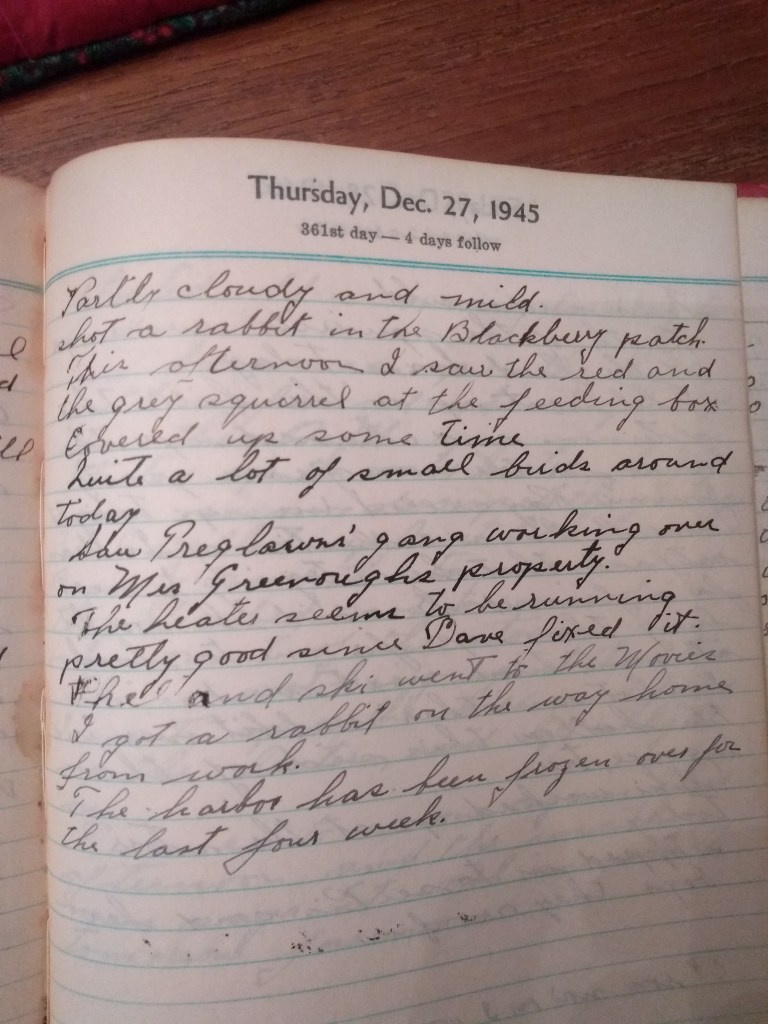 Thursday, Dec. 27, 1945
361st day — 4 days follow
Partly cloudy and mild.
shot a rabbit in the Blackberry patch.
This afternoon I saw the red and
the grey squirrel at the feeding box
Covered up some time
Quite a lot of small birds around
today
saw gang working over
on Mrs Greenoughs property.
The heater seems to be running
pretty good since Dave fixed it.
and ski went to the Movies
I got a rabbit on the way home
from work.
The harbor has been frozen over for
the last four week.